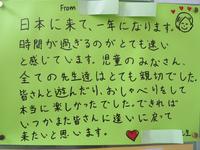 From
日本に来て、一年になります。
時間が過ぎるのがとても速い
と感じています。児童のみなさん、
全ての先生達はとても親切でした。
皆さんと遊んだり、おしゃべりをして
本当に楽しかったでした。できれば
いつかまた皆さんに逢いに戻って
来たいと思います。